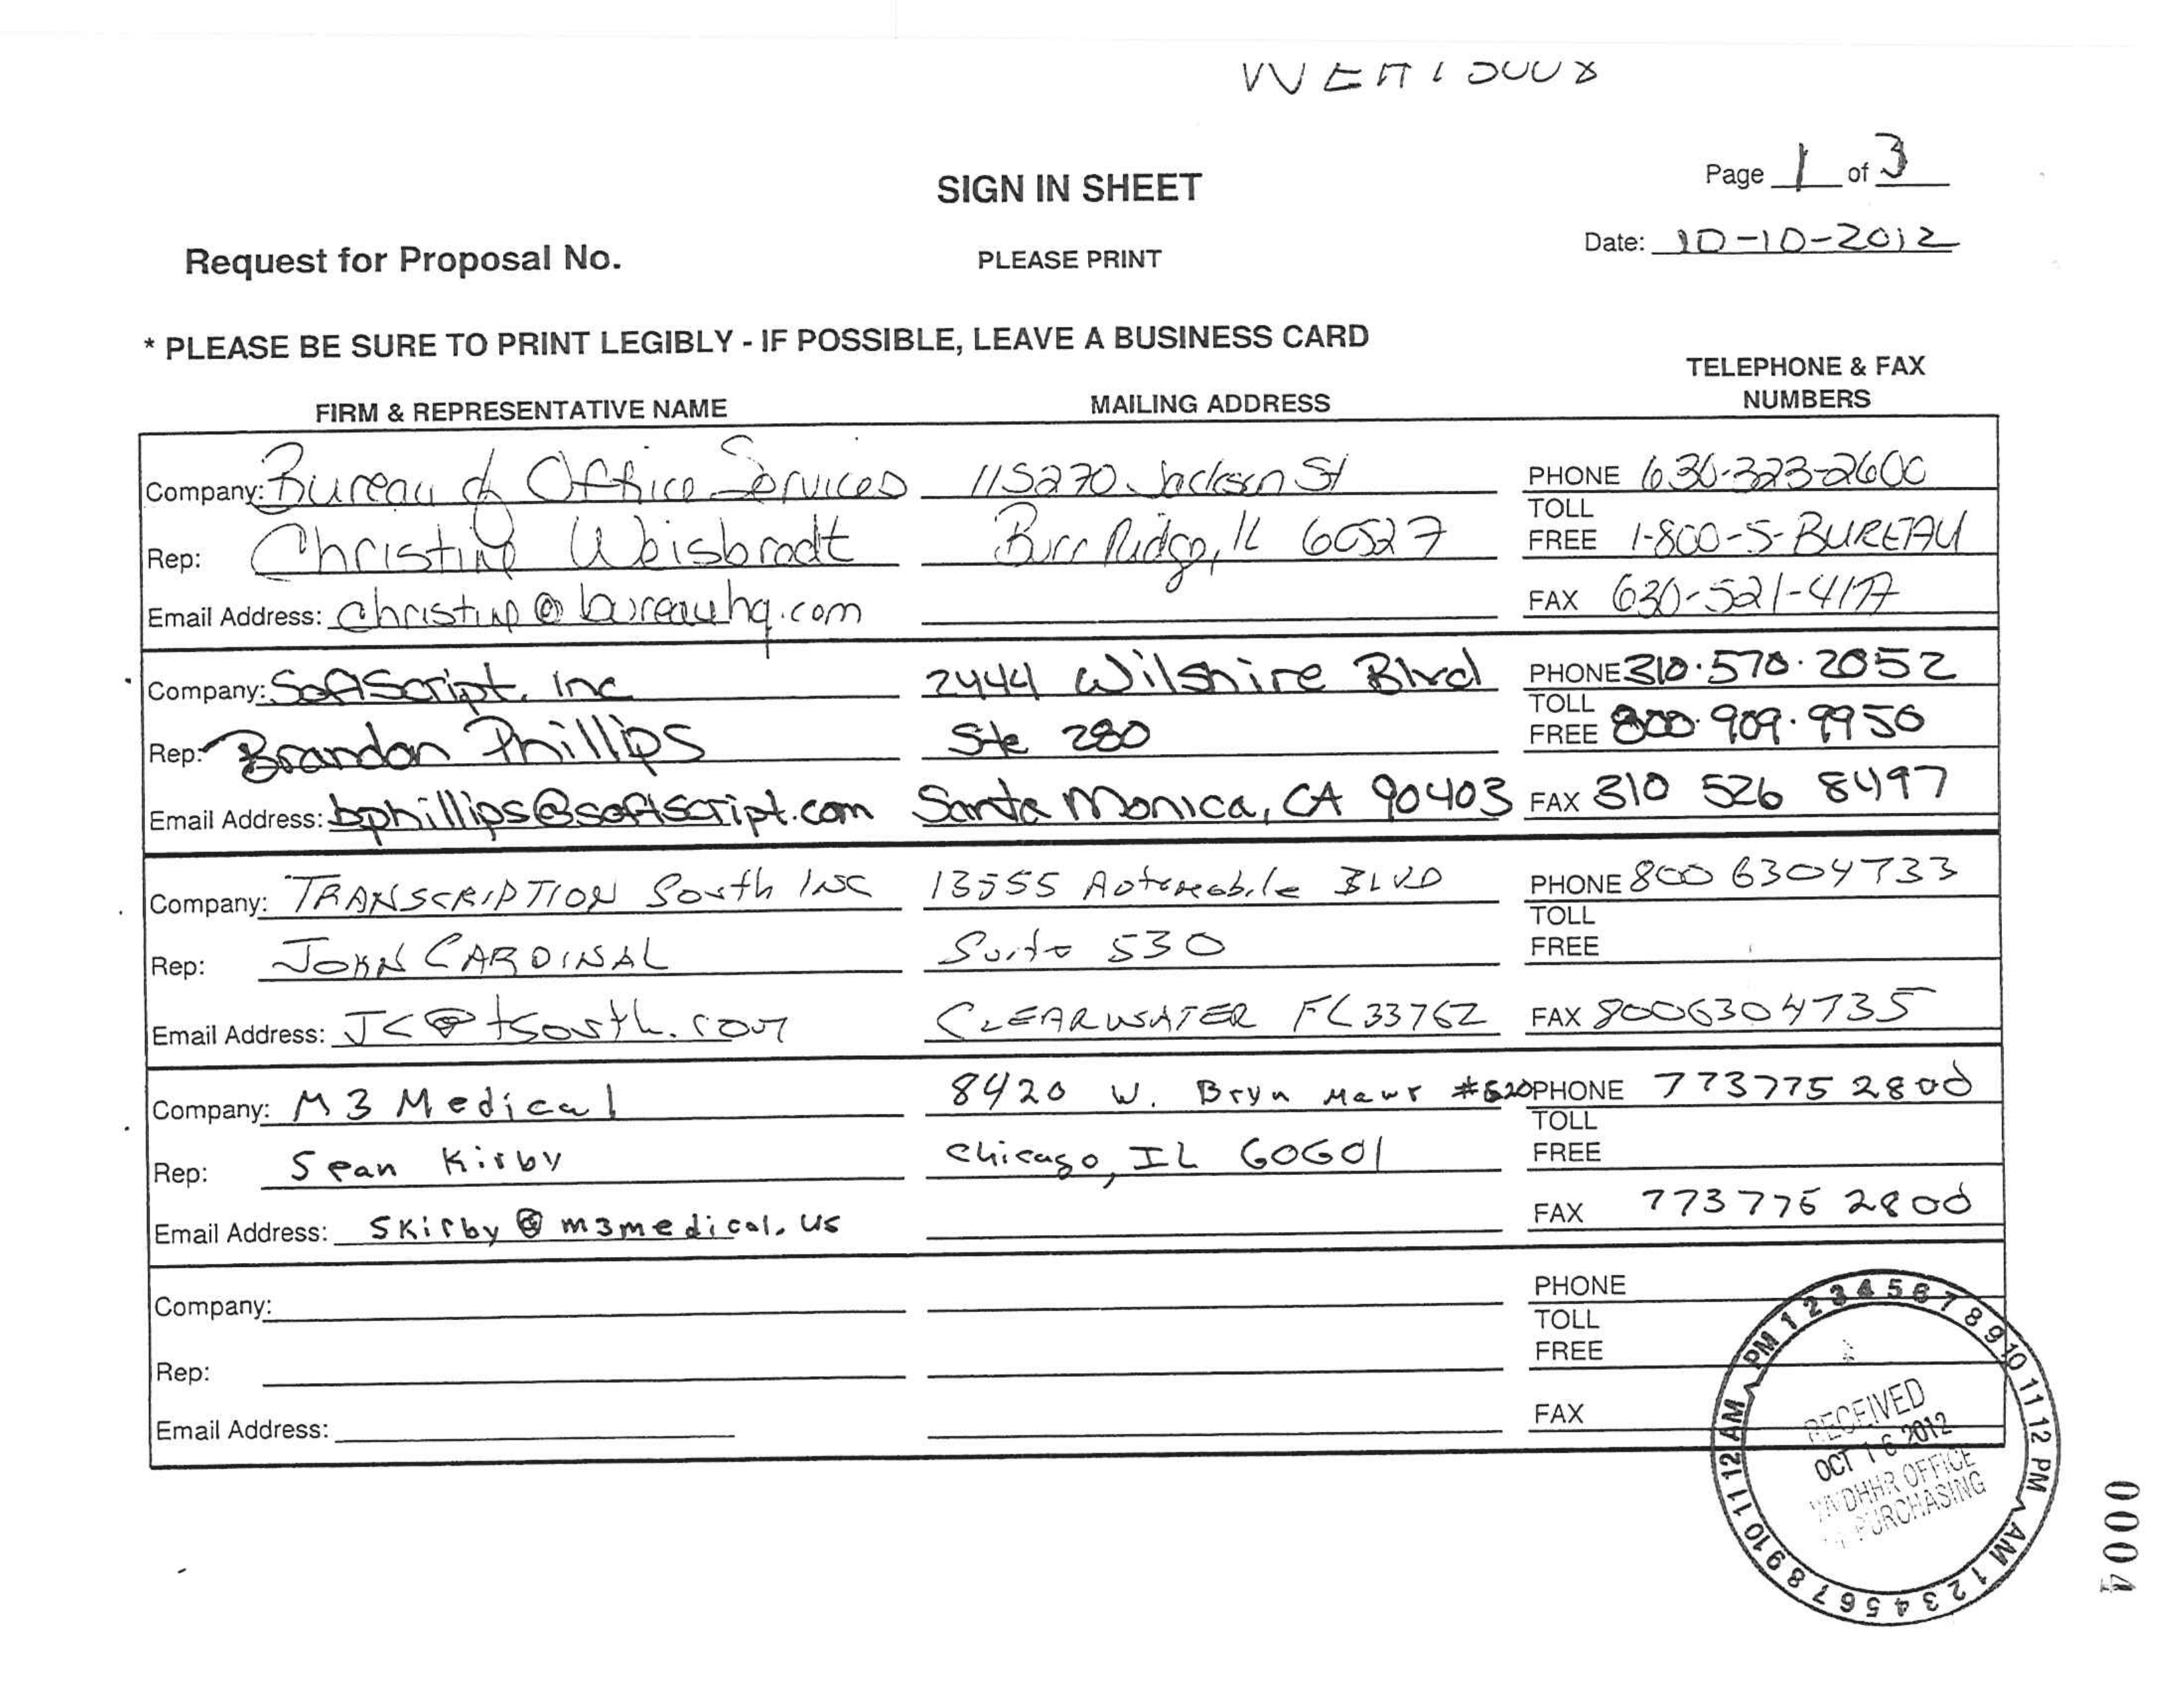 SIGN IN SHEET
Page 1 of 3
Date: 10-10-2012
Request for Proposal No.
PLEASE PRINT
* PLEASE BE SURE TO PRINT LEGIBLY - IF POSSIBLE, LEAVE A BUSINESS CARD
TELEPHONE & FAX
NUMBERS
FIRM & REPRESENTATIVE NAME
MAILING ADDRESS
Company: Bureau of Office Services 11S270 Jackson St PHONE 630-323-2600
Rep: Christine Weisbrodt Burr Ridge, IL 60527 TOLL FREE 1-800-5-BUREAU
Email Address: christine@bureauhq.com FAX 630-521-4177
Company: SoftScript, Inc 2444 Wilshire Blvd PHONE 310.570.2052
Rep: Brandon Phillips Ste 280 TOLL FREE 800.909.9950
Email Address: bphillips@softscript.com Santa Monica, CA 90403 FAX 310 526 8497
Company: TRANSCRIPTION South INC 13555 Automobile BLVD PHONE 800 6304733
Rep: JOHN CARDINAL Suite 530 TOLL FREE
Email Address: JC@tsouth.com CLEARWATER FL 33762 FAX 8006304735
Company: M3 Medical 8420 W. Bryn Mawr #620 PHONE 773 775 2800
Rep: Sean Kirby Chicago, IL 60601 TOLL FREE
Email Address: Skirby@m3medical.us FAX 773 775 2800
Company: PHONE
Rep: TOLL FREE
Email Address: FAX
RECEIVED
OCT 16 2012
WVDHHR OFFICE
PURCHASING
12 AM PM 1 2 3 4 5 6 7 8 9 10 11 12 PM AM 1 2 3 4 5 6 7 8 9 10 11
0004